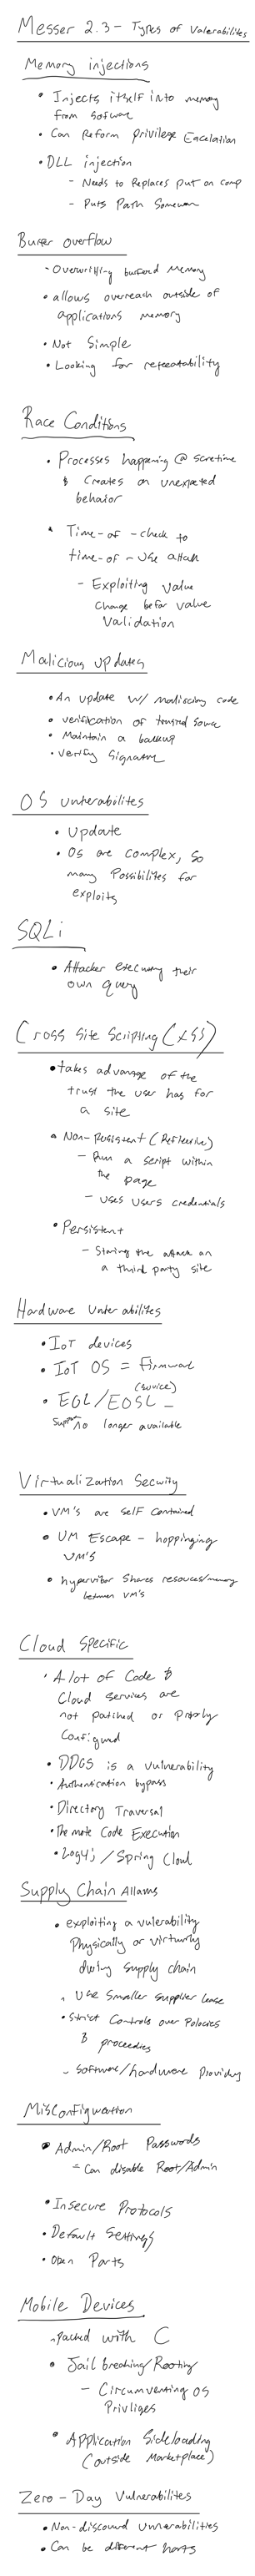 Messer 2.3 - Types of Valerabilites
Memory injections
• Injects itself into memory
from Sofware
• Can Reform Privilege Escelation
• DLL injection
- Needs to Replaces Put on comp
- Puts Path Somewere
Buffer overflow
- Overwriting buffered Memory
• allows overreach outside of
applications memory
• Not Simple
• Looking for repeatability
Race Conditions
• Processes happening @ sametime
& Creates an unexpected
behavior
• Time-of-check to
time-of-use attack
- Exploiting Value
Change before value
Validation
Malicious updates
• An update w/ malisciouy code
• verification of trusted source
• Maintain a backup
• Verify Signature
OS Vulnerabilites
• Update
• OS are complex, so
many Possibilites for
exploits
SQLi
• Attacker executing their
own query
Cross Site Scripting (XSS)
• takes advantage of the
trust the user has for
a site
• Non-Persistent (Reflexive)
- Run a script within
the page
- uses users credentials
• Persistent
- Storing the attack on
a third party site
Hardware Vulnerabilites
• IoT devices
• IoT OS = Firmware
(service)
• EOL/EOSL -
Support no longer available
Virtualization Security
• VM's are self contained
• VM Escape - hoppinging
VM's
• hypervisor shares resouces/memory
between VM's
Cloud Specific
• A lot of Code &
Cloud services are
not patched or properly
Configured
• DDOS is a vulnerability
• Authentication bypass
• Directory Traversal
• Remote Code Execution
• Log4j / Spring Cloud
Supply Chain Attacks
• exploiting a vulerability
Physically or virtually
during supply chain
• Use Smaller Supplier base
• Strict Controls over Polocies
& procedies
- Software/hardware Providers
Misconfiguration
• Admin/Root Passwords
- Can disable Root/Admin
• Insecure Protocols
• Default Settings
• Open Ports
Mobile Devices
• Packed with C
• Jail breaking/Rooting
- Circumventing OS
Privliges
• Application Sideloading
(outside Marketplace)
Zero-Day Vulnerabilites
• Non-discoverd Vulnerabilities
• Can be different